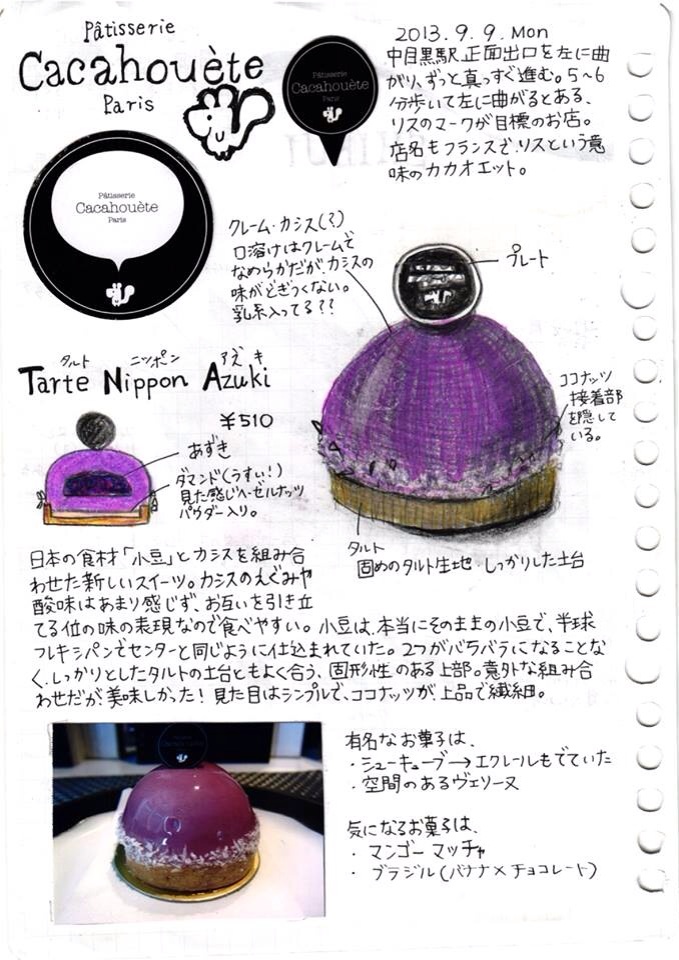 Pâtisserie
Cacahouète
Paris
Pâtisserie
Cacahouète
Paris
Pâtisserie
Cacahouète
Paris
2013. 9. 9. Mon
中目黒駅正面出口を左に曲
がり、ずっと真っすぐ進む。5~6
分歩いて左に曲がるとある、
リスのマークが目標のお店。
店名もフランスで、リスという意
味のカカオエット。
クレーム・カシス(?)
口溶けはクレームで
なめらかだが、カシスの
味がどぎつくない。
乳系入ってる??
プレート
タルト ニッポン アズキ
Tarte Nippon Azuki
¥510
ココナッツ
接着部
を隠して
いる。
あずき
ダマンド(うすい!)
見た感じヘーゼルナッツ
パウダー入り。
タルト
固めのタルト生地・しっかりした土台
日本の食材「小豆」とカシスを組み合
わせた新しいスイーツ。カシスのえぐみや
酸味はあまり感じず、お互いを引き立
てる位の味の表現なので食べやすい。小豆は、本当にそのままの小豆で、半球
フレキシパンでセンターと同じように仕込まれていた。2つがバラバラになることな
く、しっかりとしたタルトの土台ともよく合う、固形性のある上部。意外な組み合
わせだが美味しかった!見た目はシンプルで、ココナッツが上品で繊細。
有名なお菓子は、
・シューキューブ→エクレールもでていた
・空間のあるヴェリーヌ
気になるお菓子は、
・マンゴーマッチャ
・ブラジル(バナナ×チョコレート)